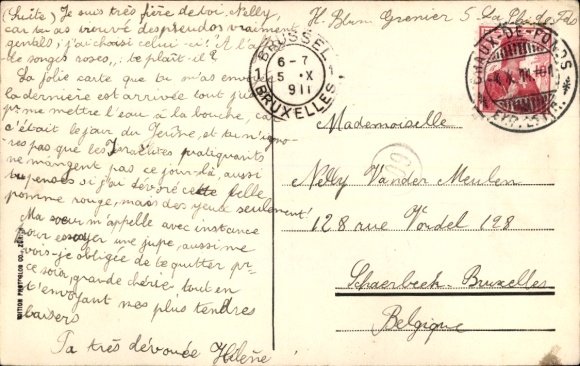 (Suite) Je suis très fière de toi, Nelly,
car tu as trouvé des pseudos vraiment
gentils; j'ai choisi celui-ci: "A l'a
de songes roses,, , te plaît-il?
La jolie carte que tu m'as envoy
la dernière est arrivée tout jus
pr me mettre l'eau à la bouche, ca
c'était le jour du Jeûne, et tu n'igno-
res pas que les Israélites pratiquants
ne mangent pas ce jour-là, aussi
tu penses si j'ai dévoré cette belle
pomme rouge, mais des yeux seulement!
Ma sœur m'appelle avec instance
pour essayer une jupe, aussi me
vois-je obligée de te quitter pr
ce soir, grande chérie tout en
t'envoyant mes plus tendres
baisers
Ta très dévouée Hélène
H. Blum Grenier 5. La Chx-de-Fds
BRUSSEL 1
6-7
5 X
1911
BRUXELLES
CHAUX-DE-FONDS
4.X.11
Mademoiselle
Nelly Vander Meulen
128 rue Vondel 128
Schaerbeek-Bruxelles
Belgique
EDITION PHOTOGLOB CO., ZÜRICH